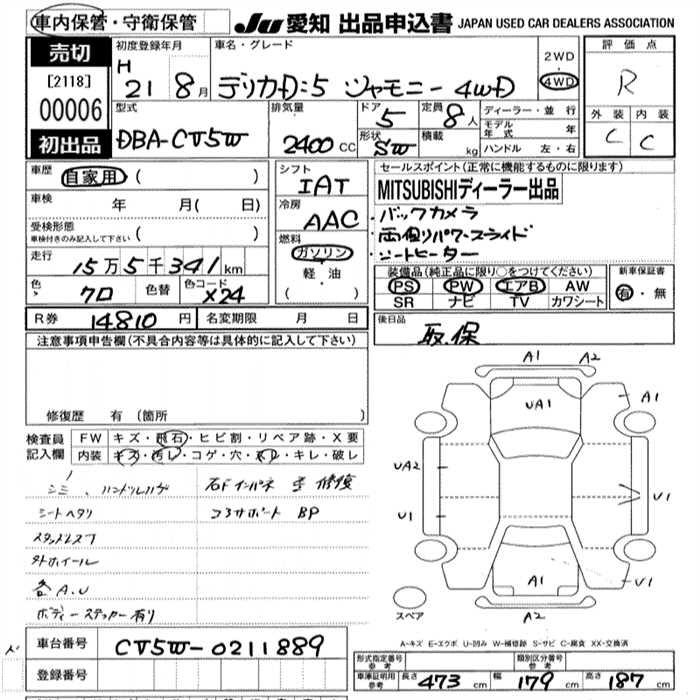 車内保管・守衛保管
JU 愛知 出品申込書 JAPAN USED CAR DEALERS ASSOCIATION
売切
[2118]
00006
初出品
初度登録年月
H 21 8月
車名・グレード
デリカD:5 ジャモニー 4WD
2WD
4WD
評価点
R
型式
DBA-CV5W
排気量
2400 CC
ドア
5
定員
8人
形状
SW
積載
kg
ディーラー・並行
モデル年式 年
ハンドル 左・右
外装 内装
C C
車歴
自家用 ( )
車検 年 月( 日)
受検形態
車検付きのみ記入して下さい ( )
走行
15万5千341km
色 クロ 色替 色コード X24
シフト
IAT
冷房
AAC
燃料
ガソリン
軽・油
( )
セールスポイント(正常に機能するものに限ります)
MITSUBISHIディーラー出品
・バックカメラ
・両側パワースライド
・シートヒーター
装備品(純正品に限り○をつけてください)
PS PW エアB AW
SR ナビ TV カワシート
新車保証書
有・無
R券 14810円 名変期限 月 日
後日品
取.保
注意事項申告欄(不具合内容等は具体的に記入して下さい)
修復歴 有 (箇所 )
検査員記入欄
FW キズ・飛石・ヒビ割・リペア跡・X要
内装 キズ・汚レ・コゲ・穴・スレ・キレ・破レ
シミ、ハンドルハゲ
シートヘタリ
スタッドレス
外ホイール
各A.U
ボディーステッカー有り
右Fインパネ 歪 修復
コアサポート BP
A1 A2
UA1
A1
UA2
U1
U1
A1
U1
A2
スペア
A-キズ E-エクボ U-凹み W-補修跡 S-サビ C-腐食 XX-交換済
車台番号 CV5W-0211889
登録番号
形式指定番号参考
類別区分番号参考
車庫証明用参考 長さ 473 cm 幅 179 cm 高さ 187 cm